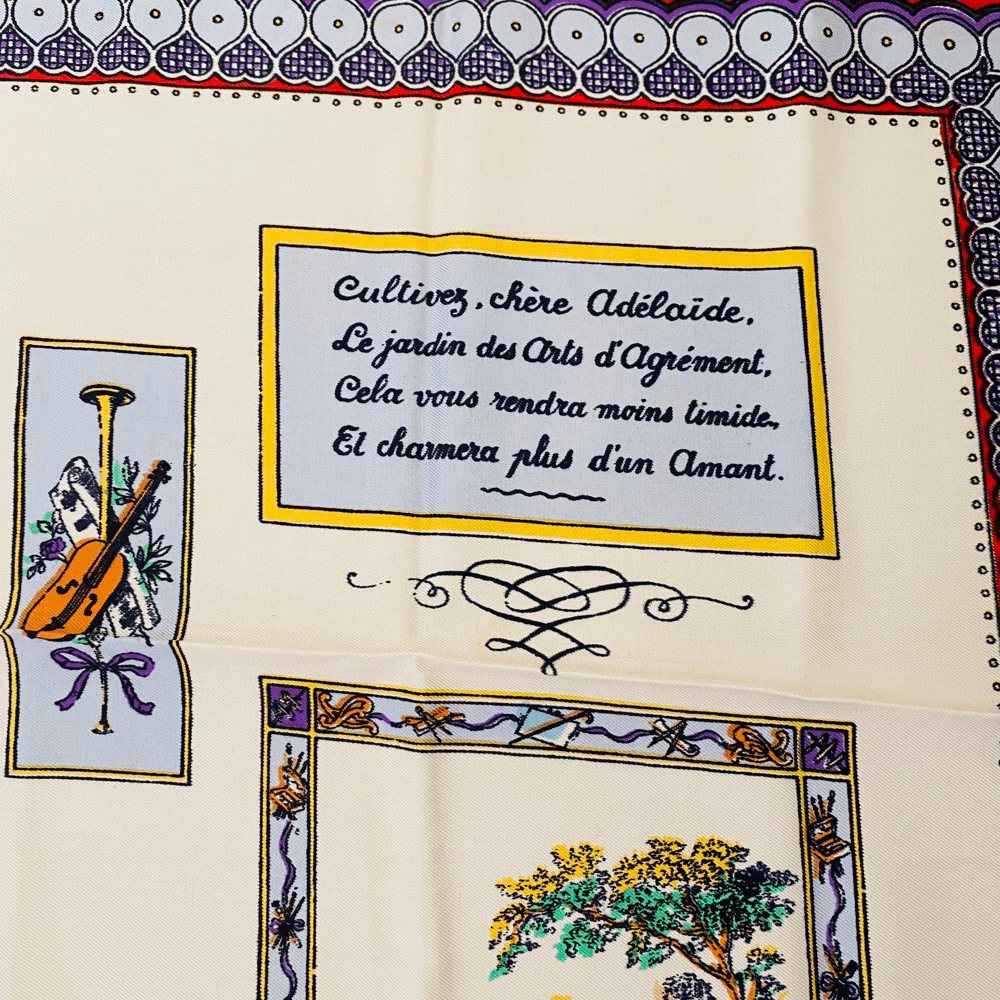 Cultivez, chère Adélaïde,
Le jardin des Arts d'Agrément,
Cela vous rendra moins timide,
Et charmera plus d'un Amant.